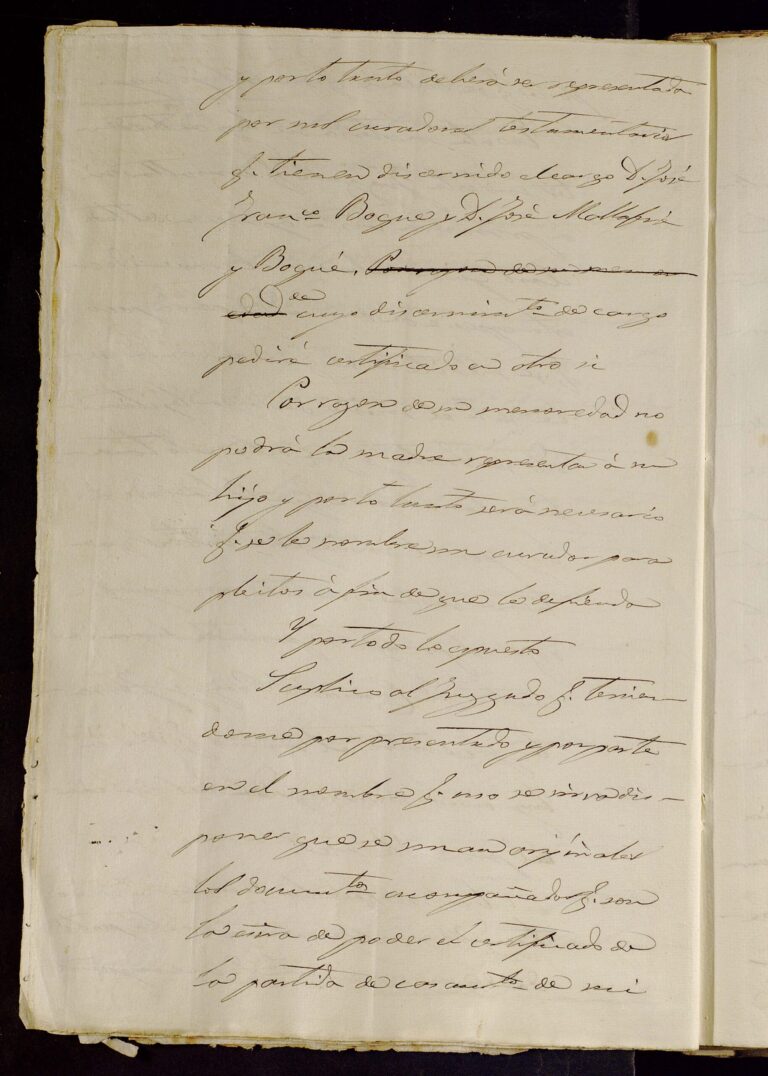 y por lo tanto deberá ser representada
por sus curadores testamentarios
q. tienen discernido el cargo D. José
Franco Bogue y D. José Mallafré
y Bogué. Por razon de su menor
edad de cuyo discernimto de cargo
pediré certificado en otro si
Por razon de su menor edad no
podrá la madre representar á su
hijo y por lo tanto será necesario
q. se le nombre un curador para
pleitos á fin de que le defienda
Y por todo lo espuesto
Suplico al Juzgado q. tenien-
dome por presentado y por parte
en el nombre q. uso se sirva dis-
poner que se unan originales
los documtos acompañados q. son
la esra de poder el certificado de
la partida de casamto de mi